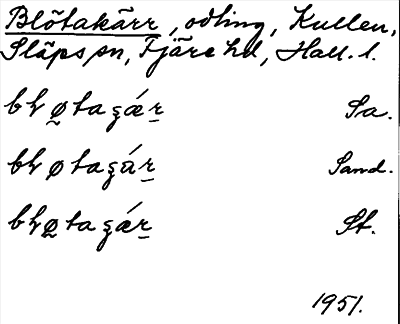 Blötakärr, odling, Kullen,
Släps sn, Fjäre hd, Hall. l.
bḷø̰taʂǽr̲ Sa.
bḷøtaʂár̲ Sand.
bḷø̰taʂǽr̲ St.
1951.